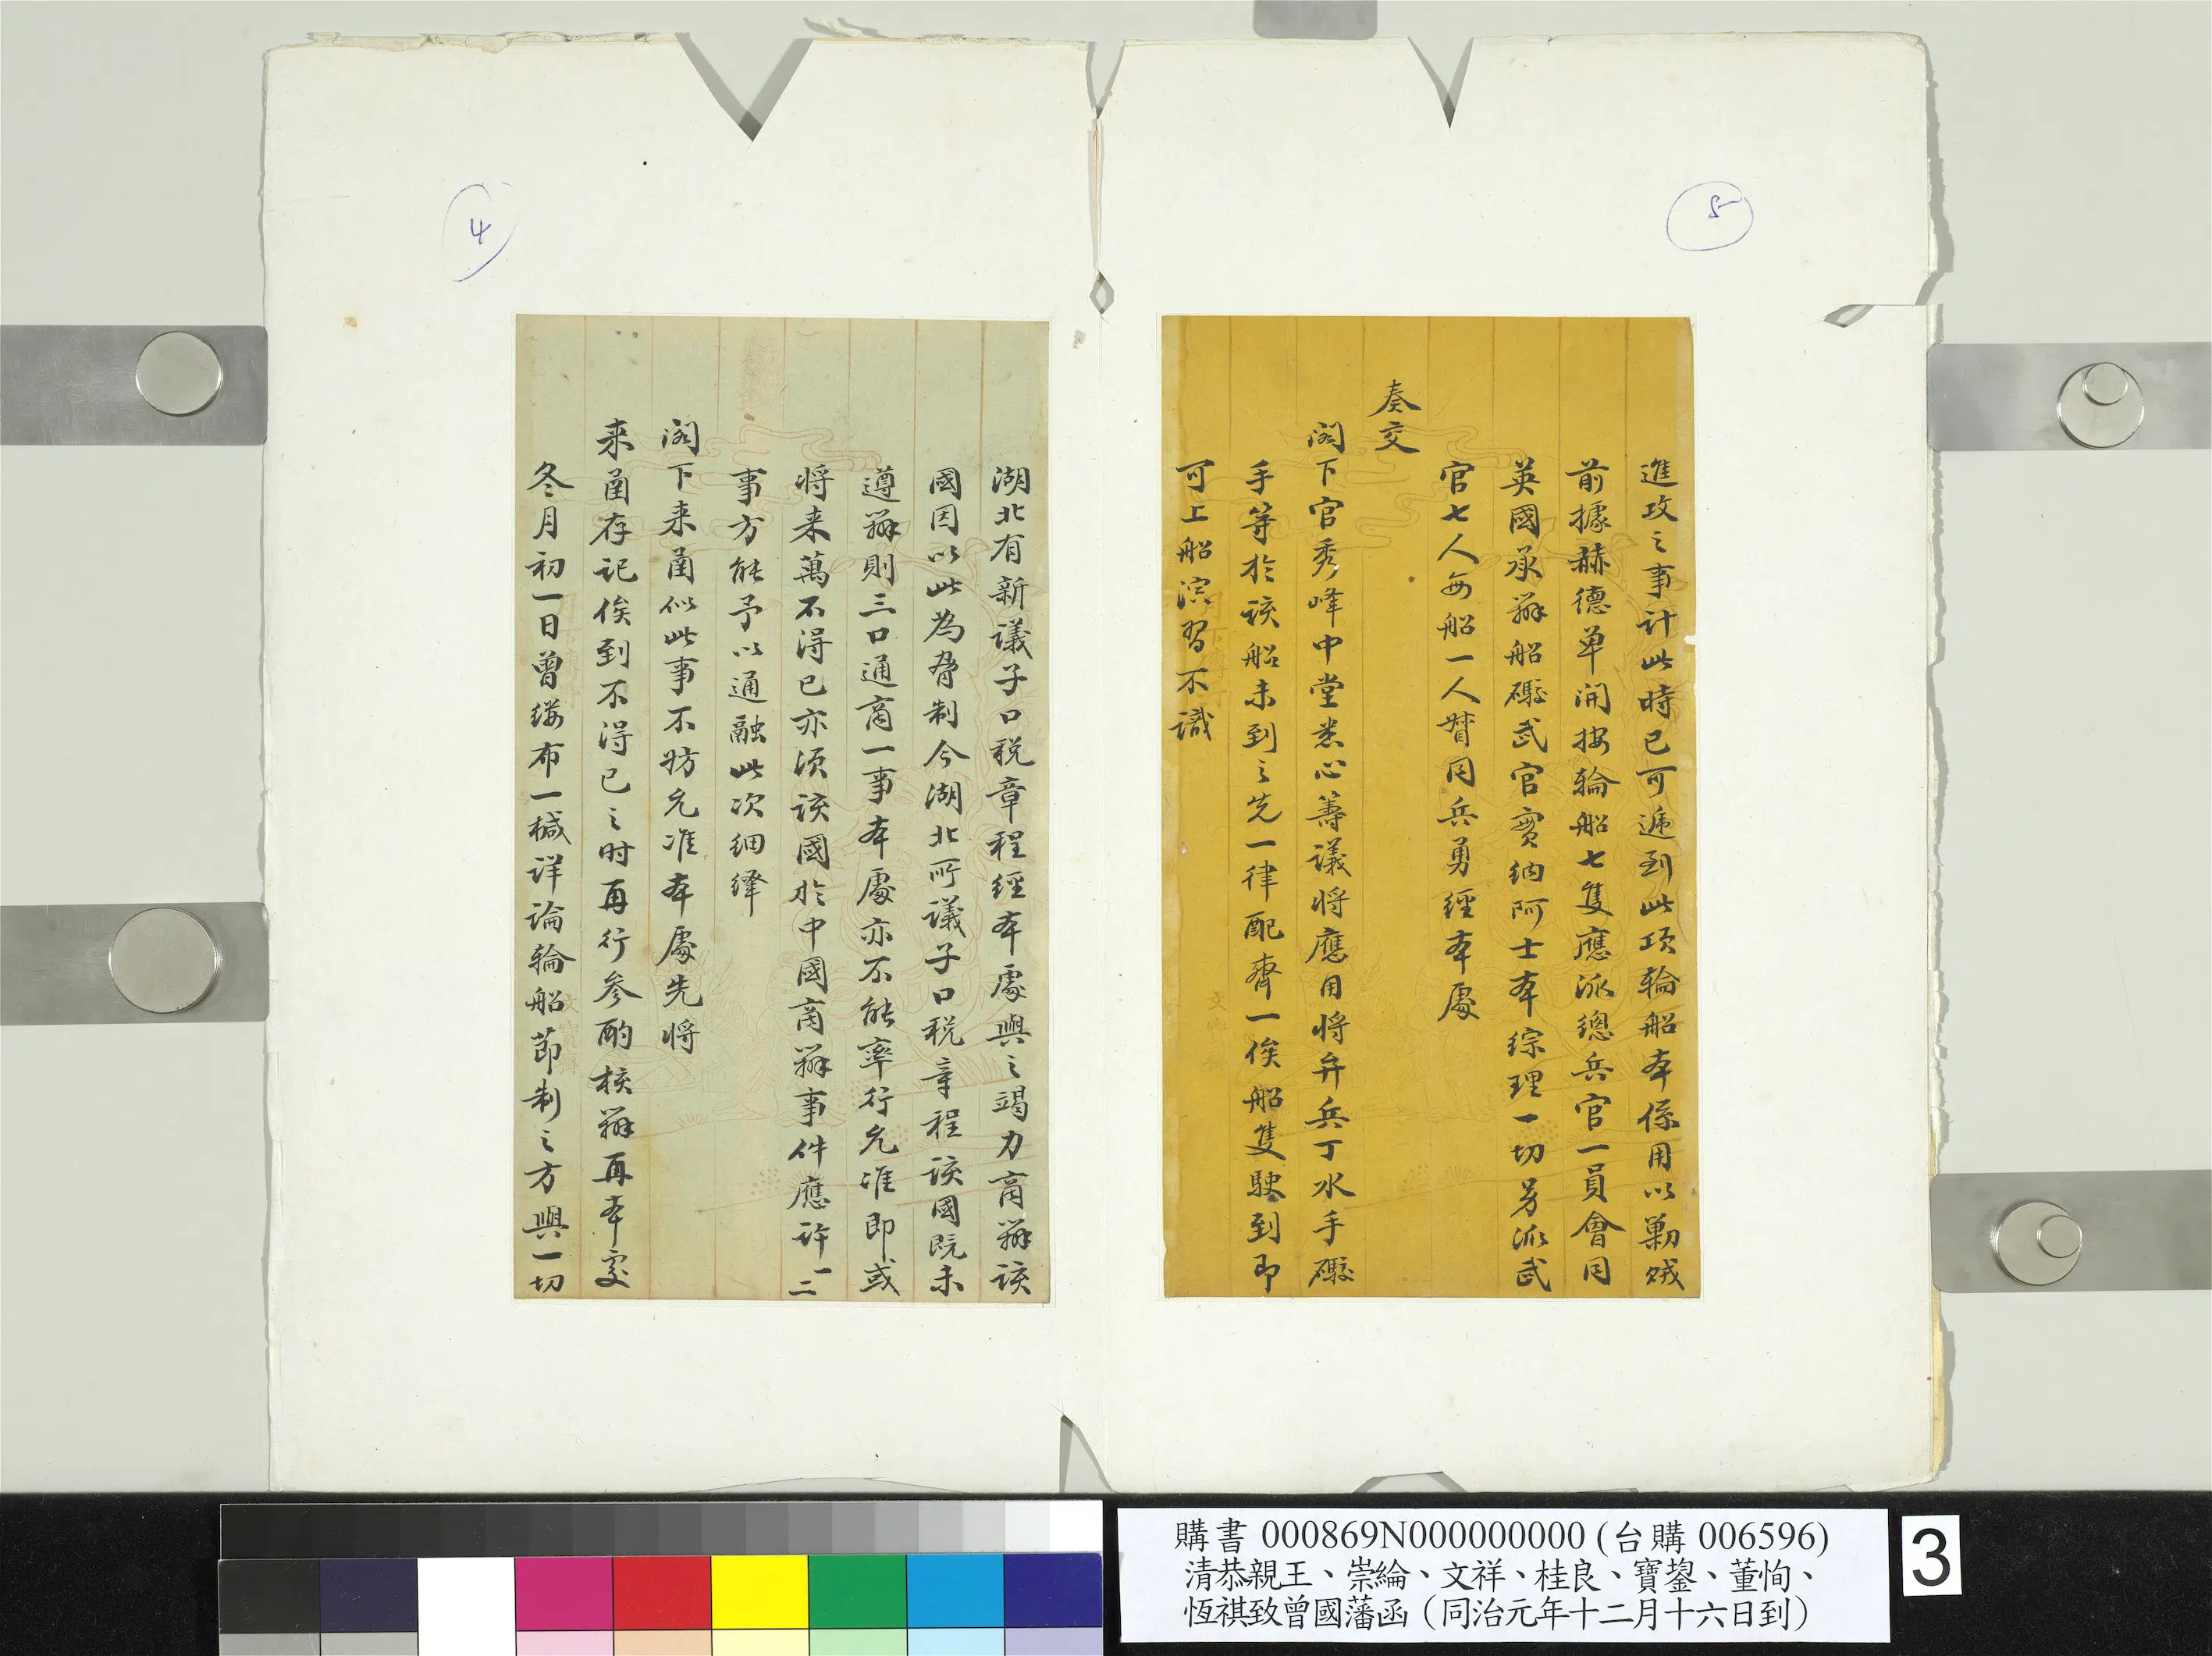 4
湖北有新議子口稅章程經本處與之竭力商辦該
國因以此為脅制今湖北所議子口稅章程該國既未
遵辦則三口通商一事本處亦不能率行允准即或
將来萬不得已亦須該國於中國商辦事件應許一二
事方能予以通融此次細繹
閣下来函似此事不妨允准本處先將
来函存記俟到不得已之时再行参酌核辦再本處
冬月初一日曾縷布一椷详論輪船節制之方與一切
5
進攻之事計此時已可遞到此項輪船本係用以勦賊
前據赫德單開按輪船七隻應派總兵官一員會同
英國承辦船礮武官實納阿士本綜理一切另派武
官七人每船一人督同兵勇經本處
奏交
閣下官秀峰中堂悉心籌議將應用將弁兵丁水手礮
手等於該船未到之先一律配齊一俟船隻駛到即
可上船演習不識
購書 000869N000000000 (台購 006596)
清恭親王、崇綸、文祥、桂良、寶鋆、董恂、
恆祺致曾國藩函（同治元年十二月十六日到）
3